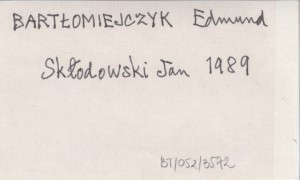 BARTŁOMIEJCZYK Edmund
Skłodowski Jan 1989
BT/052/3572